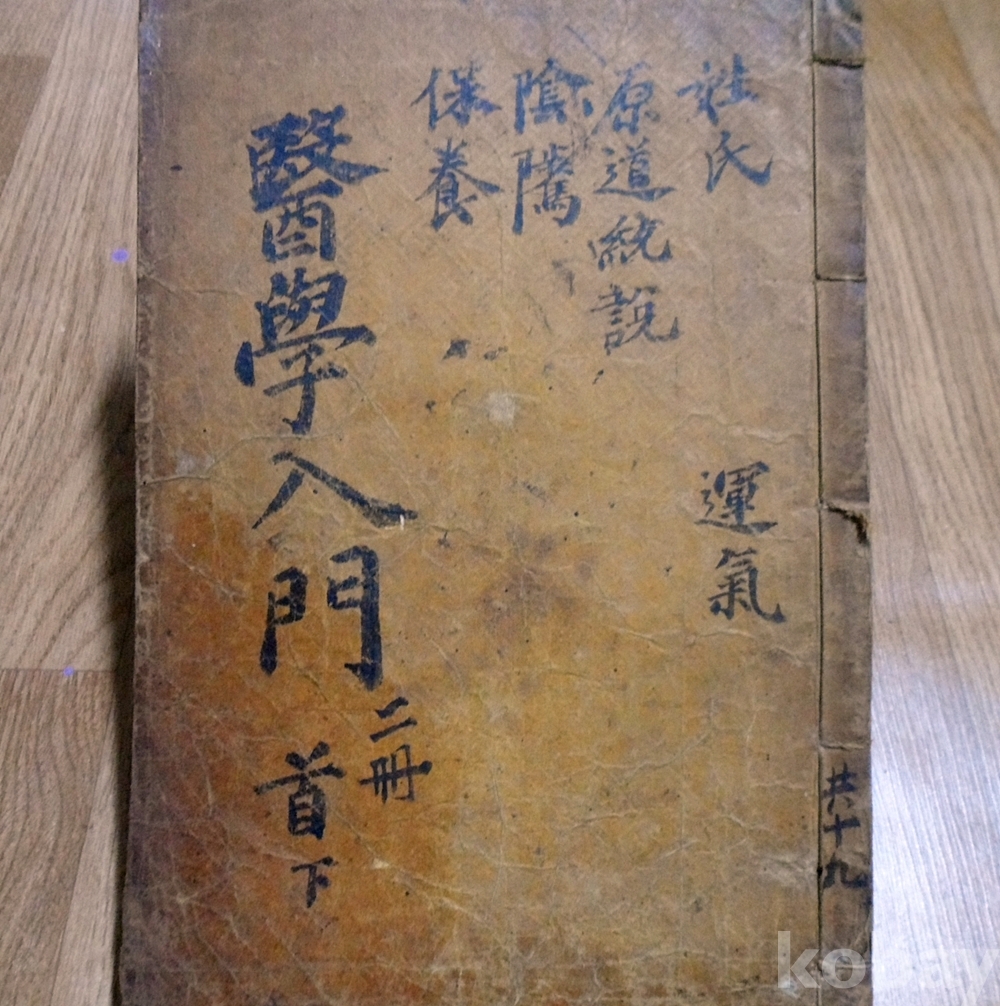 姓氏
運氣
原道統說
陰騭
保養
醫學入門
二冊
首下
共十九
kobay